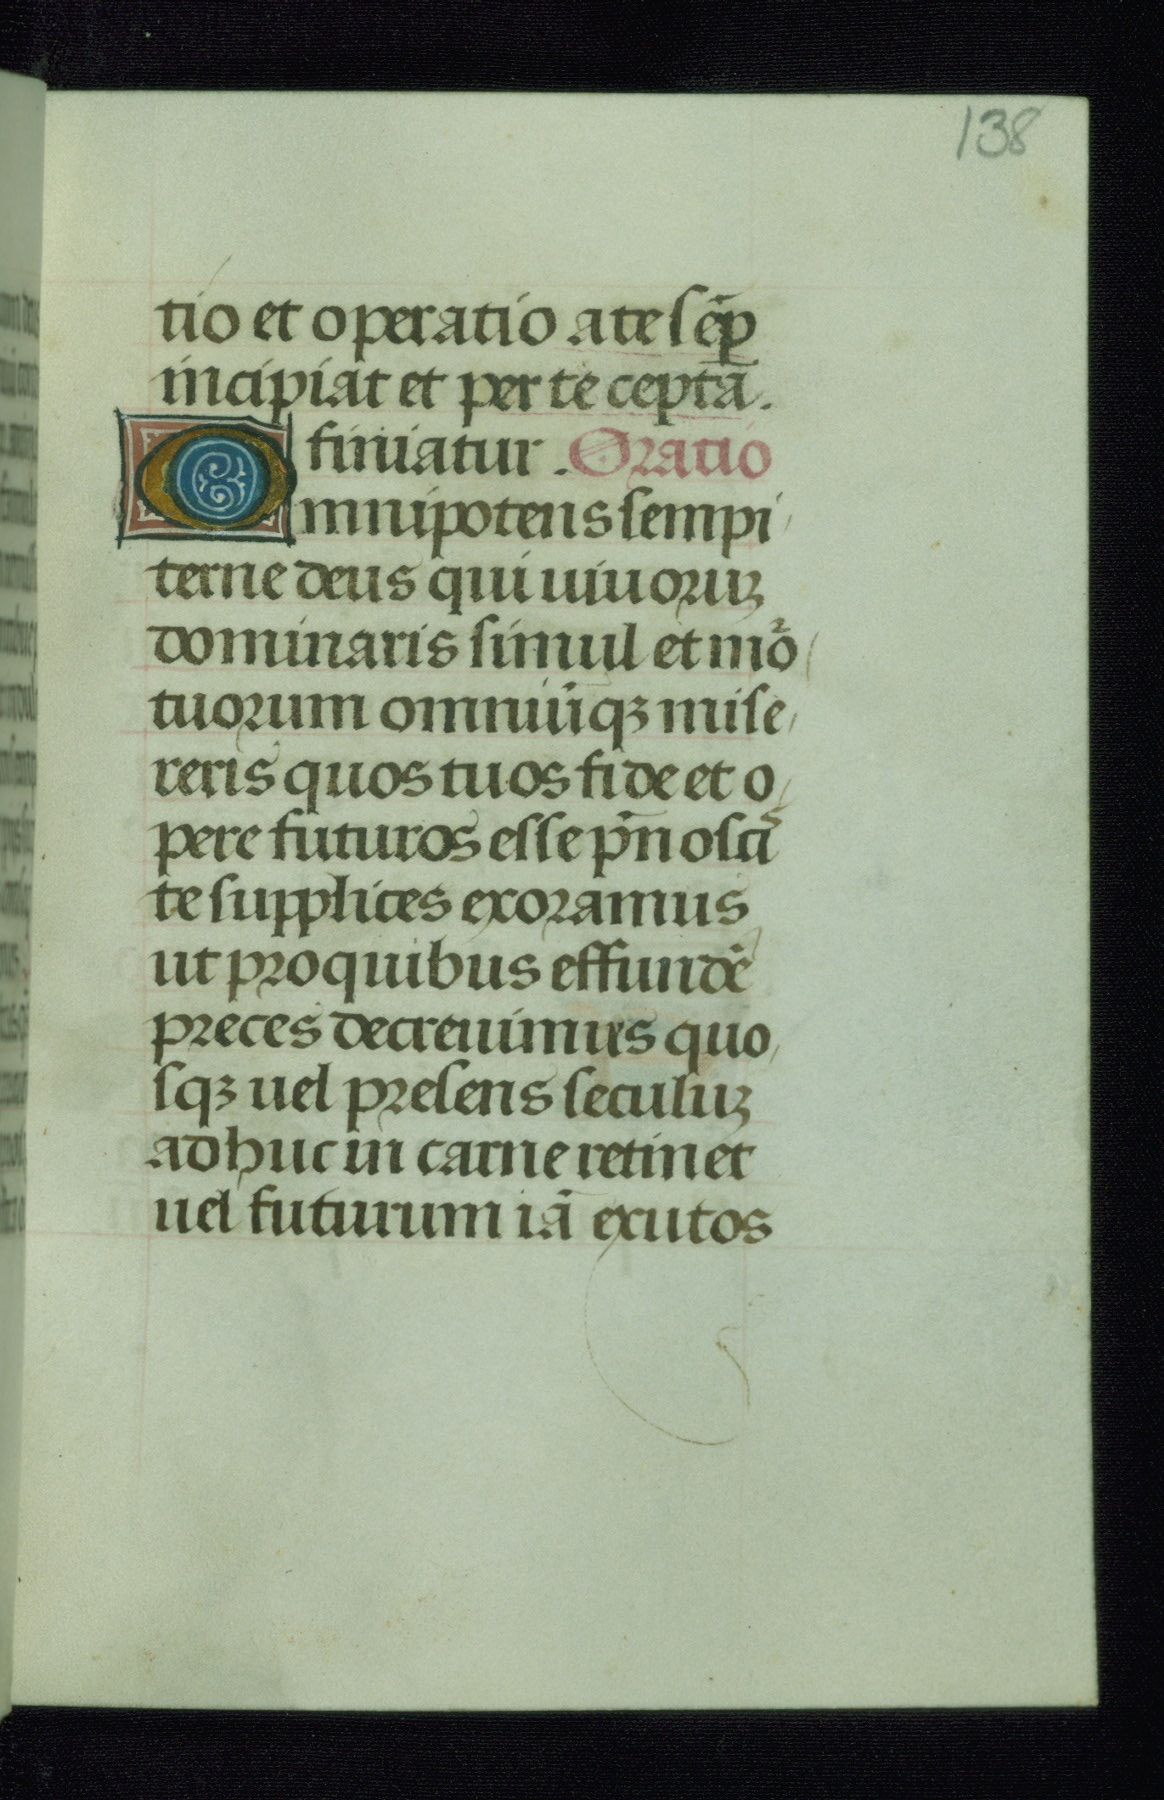 138
tio et operatio a te sẽp
incipiat et per te ceptã.
finiatur. Oratio
Omnipotens sempi
terne deus qui uiuoruꝫ
dominaris simul et moᷣ
tuorum omniũqꝫ mise
reris quos tuos fide et o
pere futuros esse p̃nosciᷤ
te supplices exoramus
ut pro quibus effundẽ
preces decreuimus quo
sqꝫ uel presens seculuꝫ
adhuc in carne retinet
uel futurum iã exutos